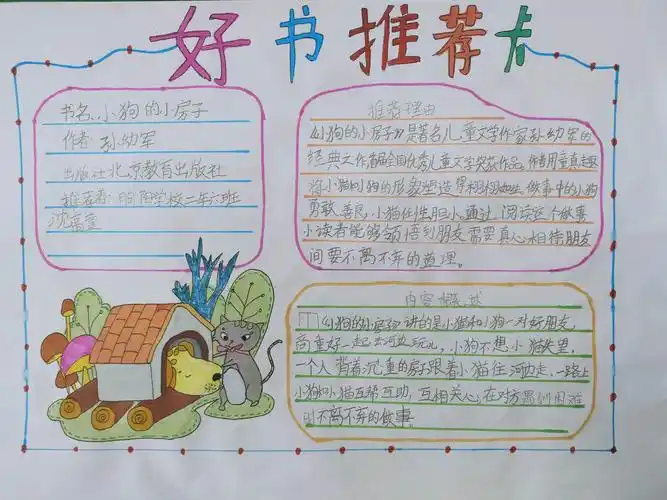 好书推荐卡
书名:小狗的小房子
作者:孙幼军
出版社:北京教育出版社
推荐者:阳学校二年六班
沈
推荐理由
《小狗的小房子》是著名儿童文学作家孙幼军的
经典之作,首届全国优秀儿童文学奖获奖作品。作者用童真趣
将小猫和小狗的形象塑造得栩栩如生,故事中的小狗
勇敢、善良,小猫任性胆小,通过阅读这个故事
小读者能够领悟到朋友需要真心相待,朋友
间要不离不弃的道理。
内容概述
《小狗的小房子》讲的是小猫和小狗一对好朋友,
商量好一起去河边玩儿。小狗不想小猫失望,
一个人背着沉重的房子跟着小猫往河边走,一路上
小狗和小猫互帮互助,互相关心,在对方遇到困难
时不离不弃的故事。